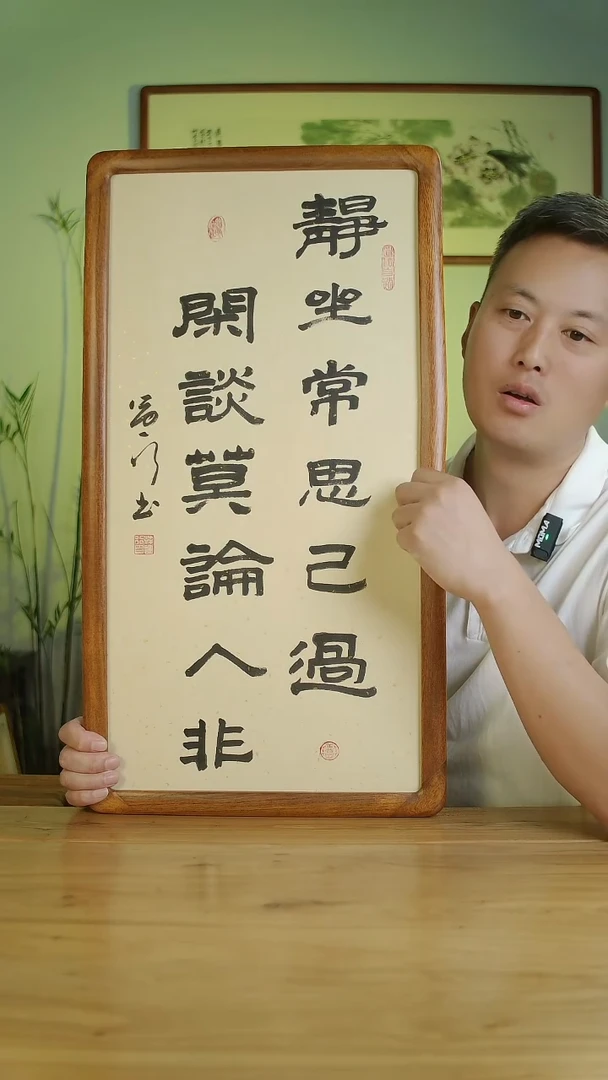 靜坐常思己過
閑談莫論人非
MOMA